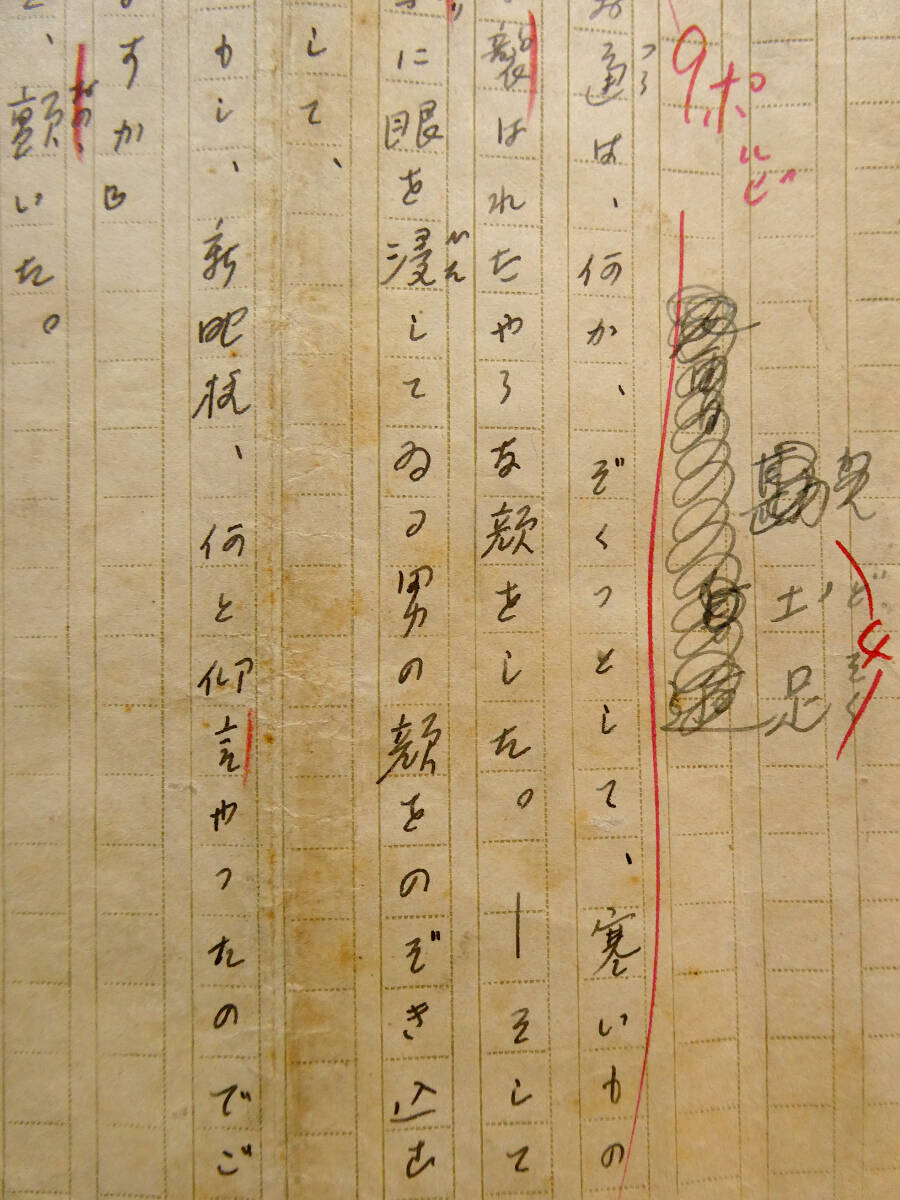 9ポ
ど
土足
どそく
4
お通は、何か、ぞくつとして、寒いもの
つう
襲はれたやうな顔をした。―そして
に眼を浸してゐる男の顔をのぞき込む
して、
もし、新昵様、何と仰言やつたのでご
すか』
、顫いた。